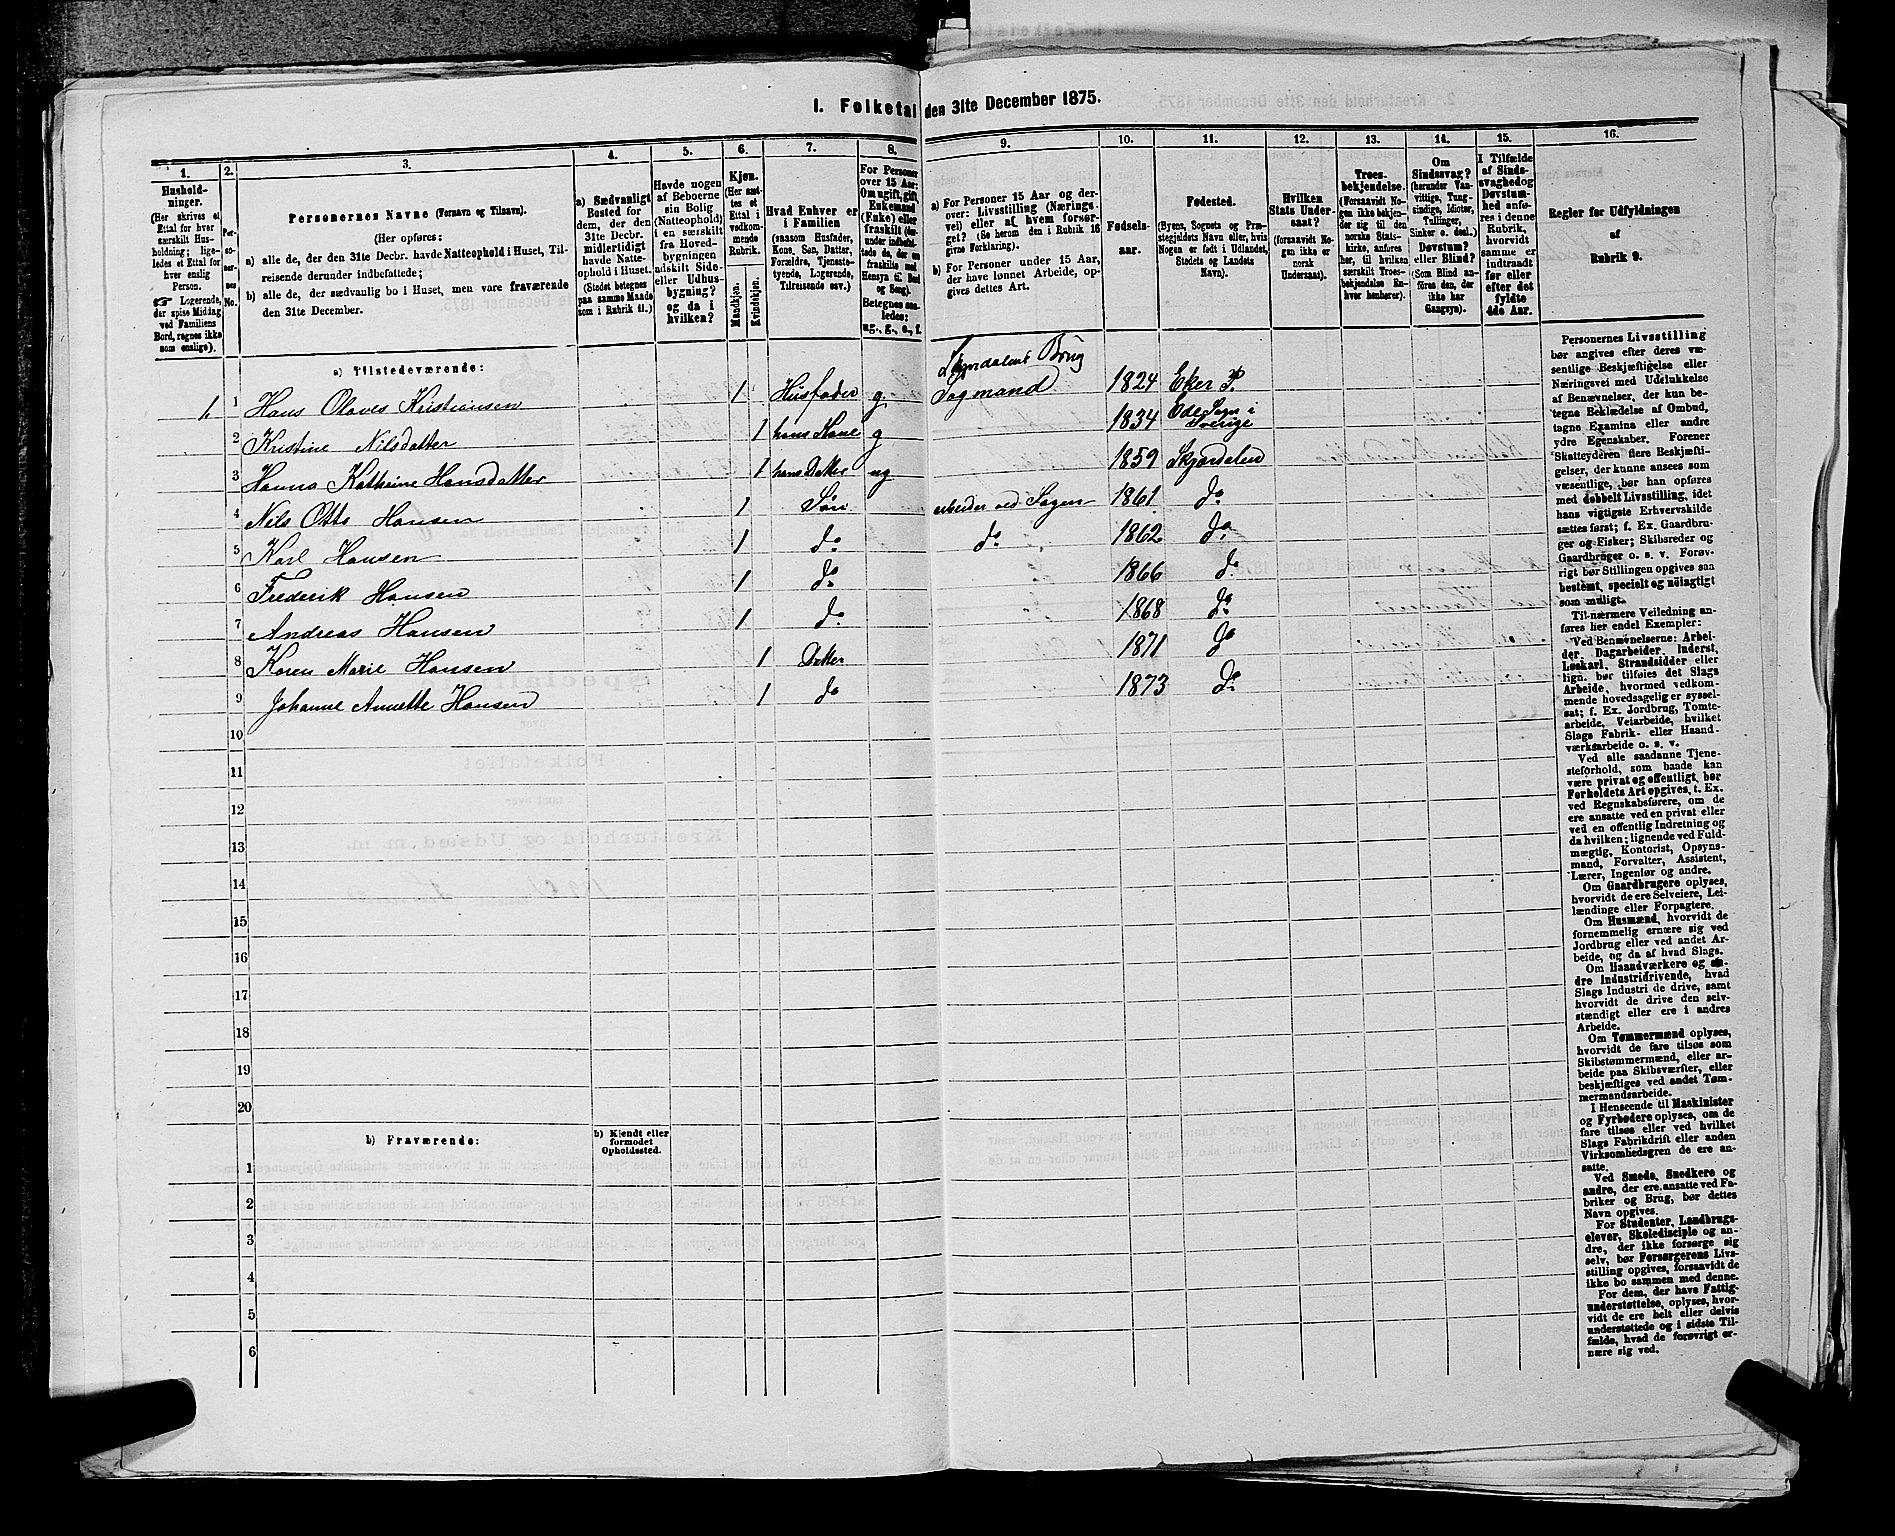 I. Folketal den 31te December 1875.
1.
2.
3.
4.
5.
6.
7.
8.
9.
10.
11.
12.
13.
14.
15.
16.
Hushold-
ninger.
(Her skrives et
Ettal for hver
særskilt Hus-
holdning; lige-
ledes et Ettal for
hver enslig
Person.
☞ Logerende,
der spise Middag
ved Familiens
Bord, regnes ikke
som enslige).
Per-
so-
ner-
nes
No.
Personernes Navne (Fornavn og Tilnavn).
(Her opføres:
a) alle de, der den 31te Decbr. havde Natteophold i Huset, Til-
reisende derunder indbefattede;
b) alle de, der sædvanlig bo i Huset, men vare fraværende
den 31te December.
a) Sædvanligt
Bosted for
dem, der den
31te Decbr.
midlertidigt
havde Natte-
ophold i Huset.
(Stedet betegnes
paa samme Maade
som i Rubrik 11.)
Havde nogen
af Beboerne
sin Bolig
(Natteophold)
i en særskilt
fra Hoved-
bygningen
adskilt Side-
eller Udhus-
bygning?
og da i
hvilken?
Kjøn.
(Her sæt-
tes et
Ettal i
vedkom-
mende
Rubrik.
Mandkjøn.
Kvindekjøn.
Hvad Enhver er
i Familien
(saasom Husfader,
Kone, Søn, Datter,
Forældre, Tjeneste-
tyende, Logerende,
Tilreisende osv.)
For Personer
over 15 Aar:
Om ugift, gift,
Enkemand
(Enke) eller
fraskilt (der-
under indbefat-
tede de, der ere
fraskilte med
Hensyn til Bord
og Seng).
Betegnes saa-
ledes:
ug., g., e., f.
a) For Personer 15 Aar og der-
over: Livsstilling (Nærings-
vei) eller af hvem forsør-
get? (Se herom den i Rubrik 16
givne Forklaring).
b) For Personer under 15 Aar,
der have lønnet Arbeide, op-
gives dettes Art.
Fødsels-
aar.
Fødested.
(Byens, Sognets og Præ-
stegjeldets Navn eller, hvis
Nogen er født i Udlandet,
Stedets og Landets
Navn).
Hvilken
Stats Under-
saat?
(forsaavidt No-
gen ikke er
norsk
Undersaat).
Troes-
bekjendelse.
(Forsaavidt No-
gen ikke bekjen-
der sig til den
norske Stats-
kirke, anføres
her, til hvilken
særskilt Troes-
bekjendelse En-
hver henhører).
Om
Sindssvag?
(herunder Van-
vittige, Tung-
sindige, Idioter,
Tullinger,
Sinker o. desl.)
Døvstum?
eller Blind?
(Som Blind an-
føres den, der
ikke har
Gangsyn).
I Tilfælde
af Sinds-
svaghed og
Døvstum-
hed anfø-
res i denne
Rubrik,
hvorvidt
samme er
indtraadt
før eller
efter det
fyldte
4de Aar.
Regler for Udfyldningen
af
Rubrik 9.
a) Tilstedeværende:
Brug
1 1 Hans Olaves Kristiansen 1 Husfader g. Sagmand 1824 Eker P.
2 Kristine Nilsdatter 1 hans Kone g 1834 Ede Sogn i Sverige
3 Hanna Kathrine Hansdatter 1 hans Datter ug 1859 Skjørdalen
4 Nils Otto Hansen 1 Søn arbeider ved Sagen 1861 do
5 Karl Hansen 1 do do 1862 do
6 Frederik Hansen 1 do 1866 do
7 Andreas Hansen 1 do 1868 do
8 Karen Marie Hansen 1 Datter 1871 do
9 Johanne Annette Hansen 1 do 1873 do
10
11
12
13
14
15
16
17
18
19
20
b) Fraværende:
b) Kjendt eller
formodet
Opholdssted.
1
2
3
4
5
6
Personernes Livsstilling
bør angives efter deres væ-
sentlige Beskjæftigelse eller
Næringsvei med Udelukkelse
af Benævnelser, der kun be-
tegne Beklædelse af Ombud,
tagne Examina eller andre
ydre Egenskaber. Forener
Skatteyderen flere Beskjæfti-
gelser, der kunne ansees som
væsentlige, bør han opføres
med dobbelt Livsstilling, idet
hans vigtigste Erhvervskilde
sættes først; f. Ex. Gaardbru-
ger og Fisker; Skibsreder og
Gaardbruger o. s. v. Forøv-
rigt bør Stillingen opgives saa
bestemt, specielt og nöiagtigt
som muligt.
Til nærmere Veiledning an-
føres her endel Exempler:
Ved Benævnelserne: Arbei-
der, Dagarbeider, Inderst,
Løskarl, Strandsidder eller
lign. bør tilføies det Slags
Arbeide, hvormed vedkom-
mende hovedsagelig er syssel-
sat; f. Ex. Jordbrug, Tomte-
arbeide, Veiarbeide, hvilket
Slags Fabrik- eller Haand-
værksarbeide o. s. v.
Ved alle saadanne Tjene-
steforhold, som baade kan
være privat og offentligt, bør
Forholdets Art opgives, t. Ex.
ved Regnskabsførere, om de
ere ansatte ved en privat eller
ved en offentlig Indretning og
da hvilken; lignende ved Fuld-
mægtig, Kontorist, Opsyns-
mand, Forvalter, Assistent,
Lærer, Ingeniør og andre.
Om Gaardbrugere oplyses,
hvorvidt de ere Selveiere, Lei-
lændinge eller Forpagtere.
Om Husmænd, hvorvidt de
fornemmelig ernære sig ved
Jordbrug eller ved andet Ar-
beide, og da af hvad Slags.
Om Haandværkere og an-
dre Industridrivende, hvad
Slags Industri de drive, samt
hvorvidt de drive den selv-
stændigt eller ere i andres
Arbeide.
Om Tømmermænd oplyses,
hvorvidt de fare tilsøs som
Skibstømmermænd, eller ar-
beide paa Skibsværfter, eller
beskjæftiges ved andet Tøm-
mermandsarbeide.
I Henseende til Maskinister
og Fyrbødere oplyses, om de
fare tilsøs eller ved hvilket
Slags Fabrikdrift eller anden
Virksomhedsgren de ere an-
satte.
Ved Smede, Snedkere og
andre, der ere ansatte ved Fa-
briker og Brug, bør dettes
Navn opgives.
For Studenter, Landbrugs-
elever, Skoledisciple og an-
dre, der ikke forsørge sig
selv, bør Forsørgerens Livs-
stilling opgives, forsaavidt de
ikke bo sammen med denne.
For dem, der have Fattig-
understøttelse, oplyses, hvor-
vidt de ere helt eller delvis
understøttede og i sidste Til-
fælde, hvad de forøvrigt er-
nære sig ved.